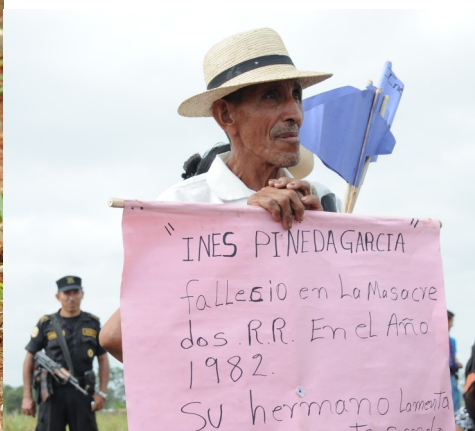 "INES PINEDA GARCIA"
fallecio en La Masacre
dos. R.R. En el Año
1982.
Su hermano Lamenta